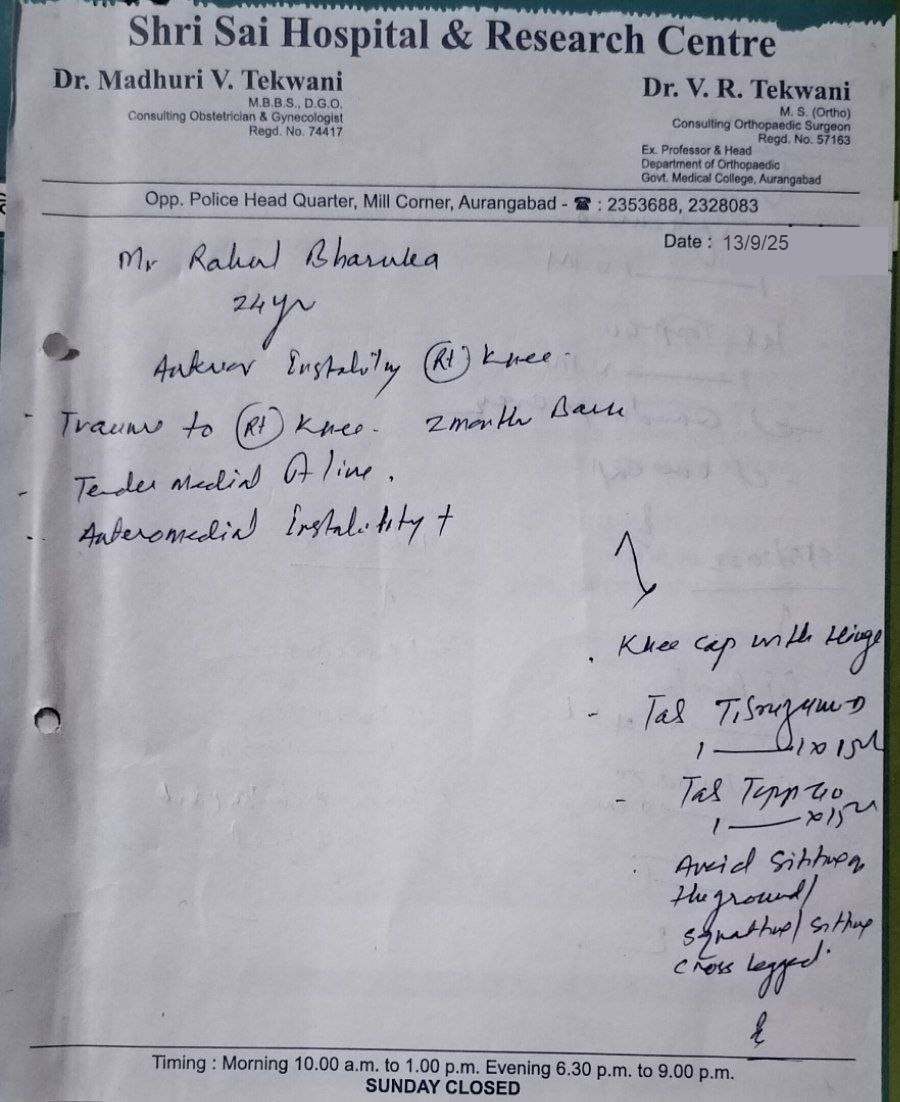 Shri Sai Hospital & Research Centre
Dr. Madhuri V. Tekwani
M.B.B.S., D.G.O.
Consulting Obstetrician & Gynecologist
Regd. No. 74417
Dr. V. R. Tekwani
M. S. (Ortho)
Consulting Orthopaedic Surgeon
Regd. No. 57163
Ex. Professor & Head
Department of Orthopaedic
Govt. Medical College, Aurangabad
Opp. Police Head Quarter, Mill Corner, Aurangabad - ☎ : 2353688, 2328083
Date : 13/9/25
Mr Rahul Bharuka
24 yr
Instability (Rt) Knee.
- Trauma to (Rt) Knee. 2 month Back
- Tender Medial line.
- Anteromedial Instability +
. Knee cap with Hinge
- Tab
1 — 1 x 15
- Tab
1 — x 15
. Avoid Sitting
the ground/
squatting/ sitting
cross legged.
Timing : Morning 10.00 a.m. to 1.00 p.m. Evening 6.30 p.m. to 9.00 p.m.
SUNDAY CLOSED